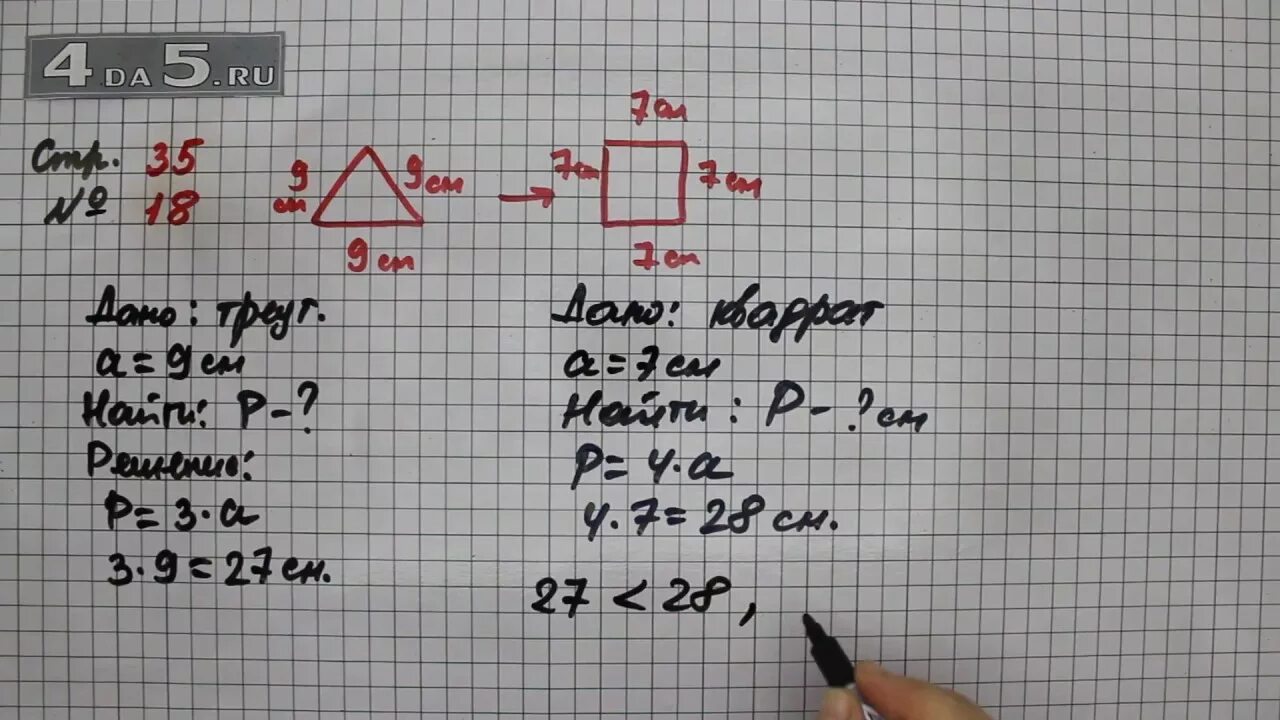 4.DA 5.RU
Стр. 35
№ 18
9 см
9 см
9 см
7 см
7 см
7 см
7 см
Дано: треуг.
a = 9 см
Найти: P - ?
Решение:
P = 3 · a
3 · 9 = 27 см.
Дано: квадрат
a = 7 см
Найти: P - ? см
P = 4 · a
4 · 7 = 28 см.
27 < 28,